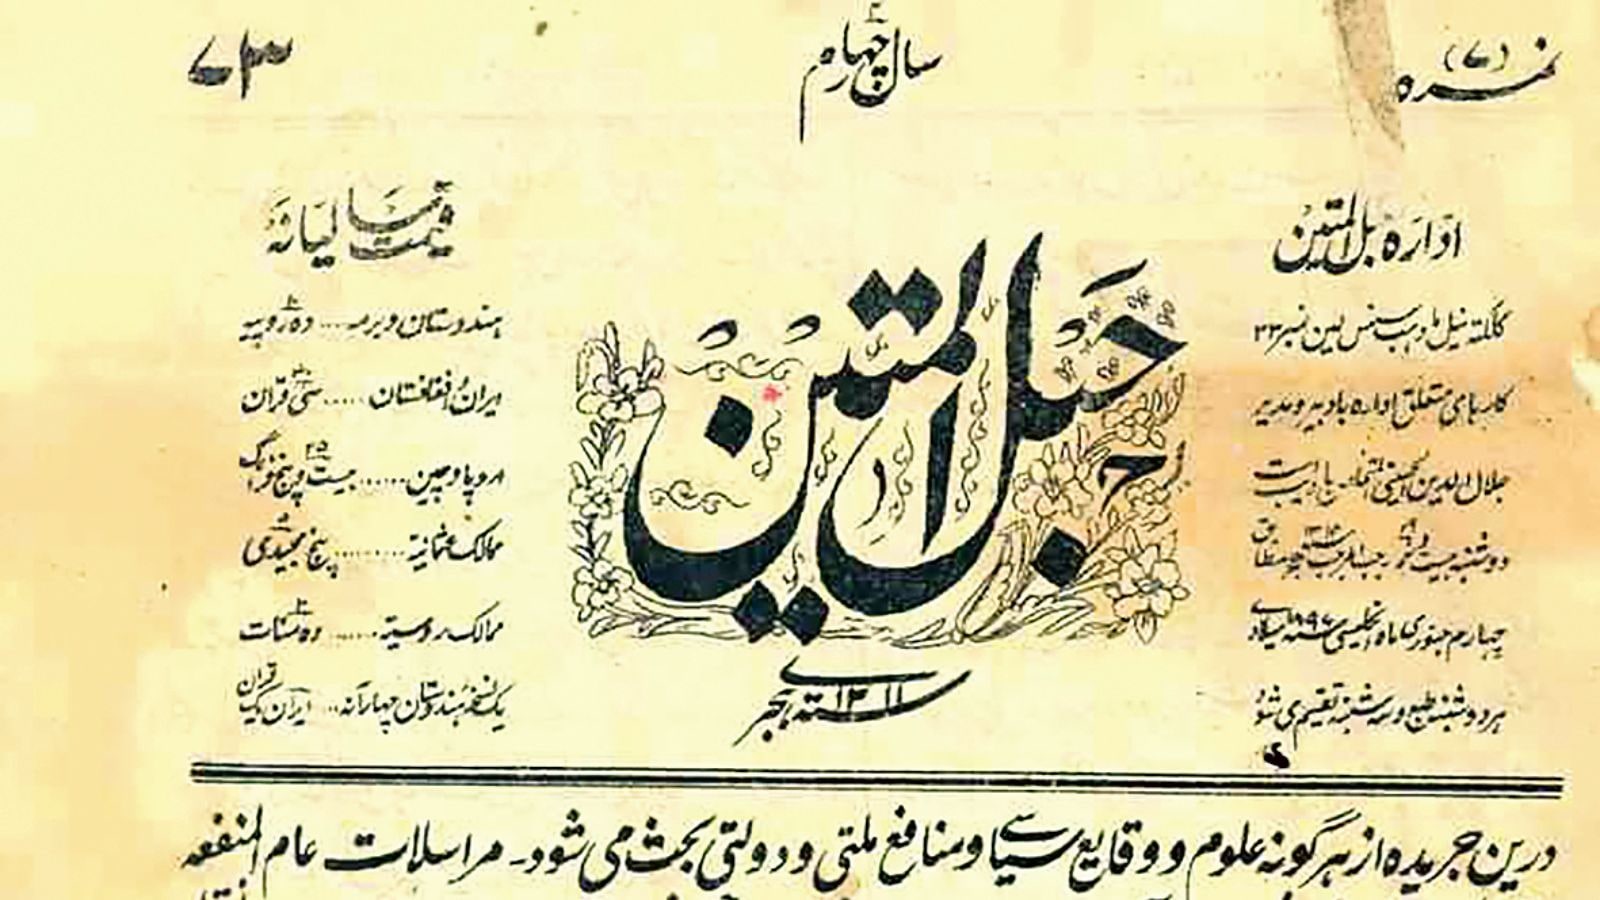 نمره (۷)
سال چهارم ۴
۷۳
اداره حبل المتین
کلکته نیل مادهب سنس لین نمبر ۲۳
کارهای متعلق اداره با دبیر و مدیر
جلال الدین الحسینی است
دوشنبه بیست و ۲۹ رجب المرجب ۱۳۱۴ مطابق
چهارم جنوری ماه انگلیسی سنه ۱۸۹۷ میلادی
هر دوشنبه طبع و سه شنبه تقسیم می شود
حبل المتین
سنه ۱۳۱۱ هجری
قیمت سالیانه
هندوستان و برمه .... ده روپیه ۱۰
ایران و افغانستان ..... سی قران ۳۰
اروپا و چین ...... بیست و پنج فرانک ۲۵
ممالک عثمانیه .......... پنج مجیدی ۵
ممالک روسیه ...... ده منات ۱۰
یک نسخه هندوستان چهار آنه ... ایران یک قران
درین جریده از هر گونه علوم و وقایع سیاسی و منافع ملتی و دولتی بحث می شود - مراسلات عام المنفعه